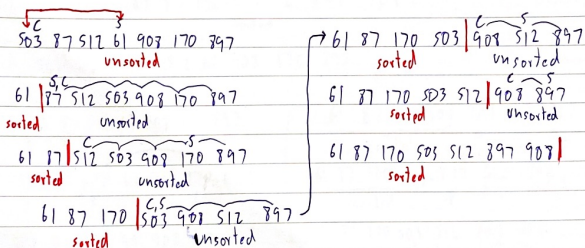 C S
503 87 512 61 908 170 897
unsorted
S, C
61 | 87 512 503 908 170 897
sorted unsorted
C S
61 87 | 512 503 908 170 897
sorted unsorted
C, S
61 87 170 | 503 908 512 897
sorted unsorted
C S
61 87 170 503 | 908 512 897
sorted unsorted
C S
61 87 170 503 512 | 908 897
sorted unsorted
61 87 170 503 512 897 908 |
sorted